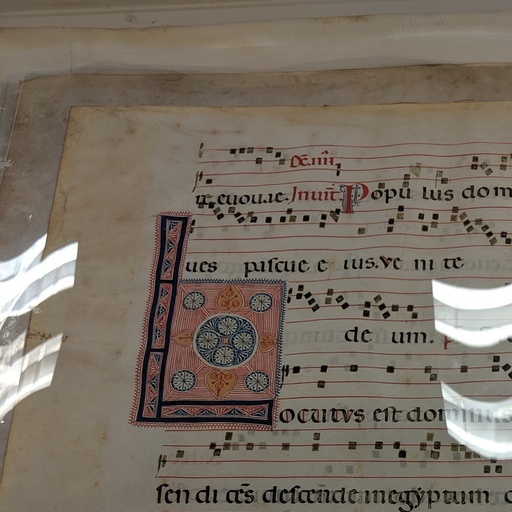 euouae. Inuit Popu lus dom
ues pascue e ius. ve ni te
de um.
Locutvs est dominus
sen di cēs descende inegyptum